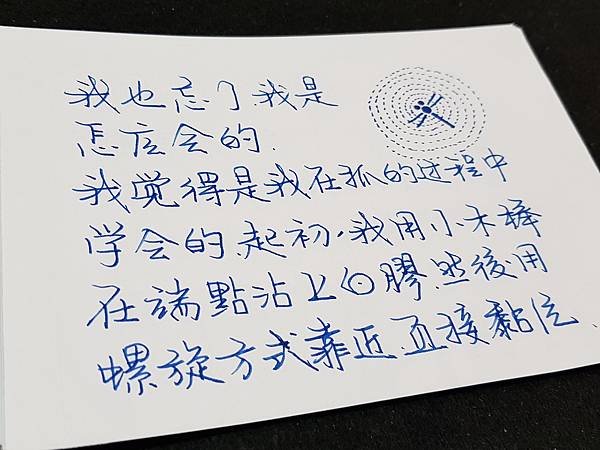 我也忘了我是
怎么会的.
我觉得是我在抓的过程中
学会的.起初,我用小木棒
在端點沾上白膠.然後用
螺旋方式靠近.直接黏住.